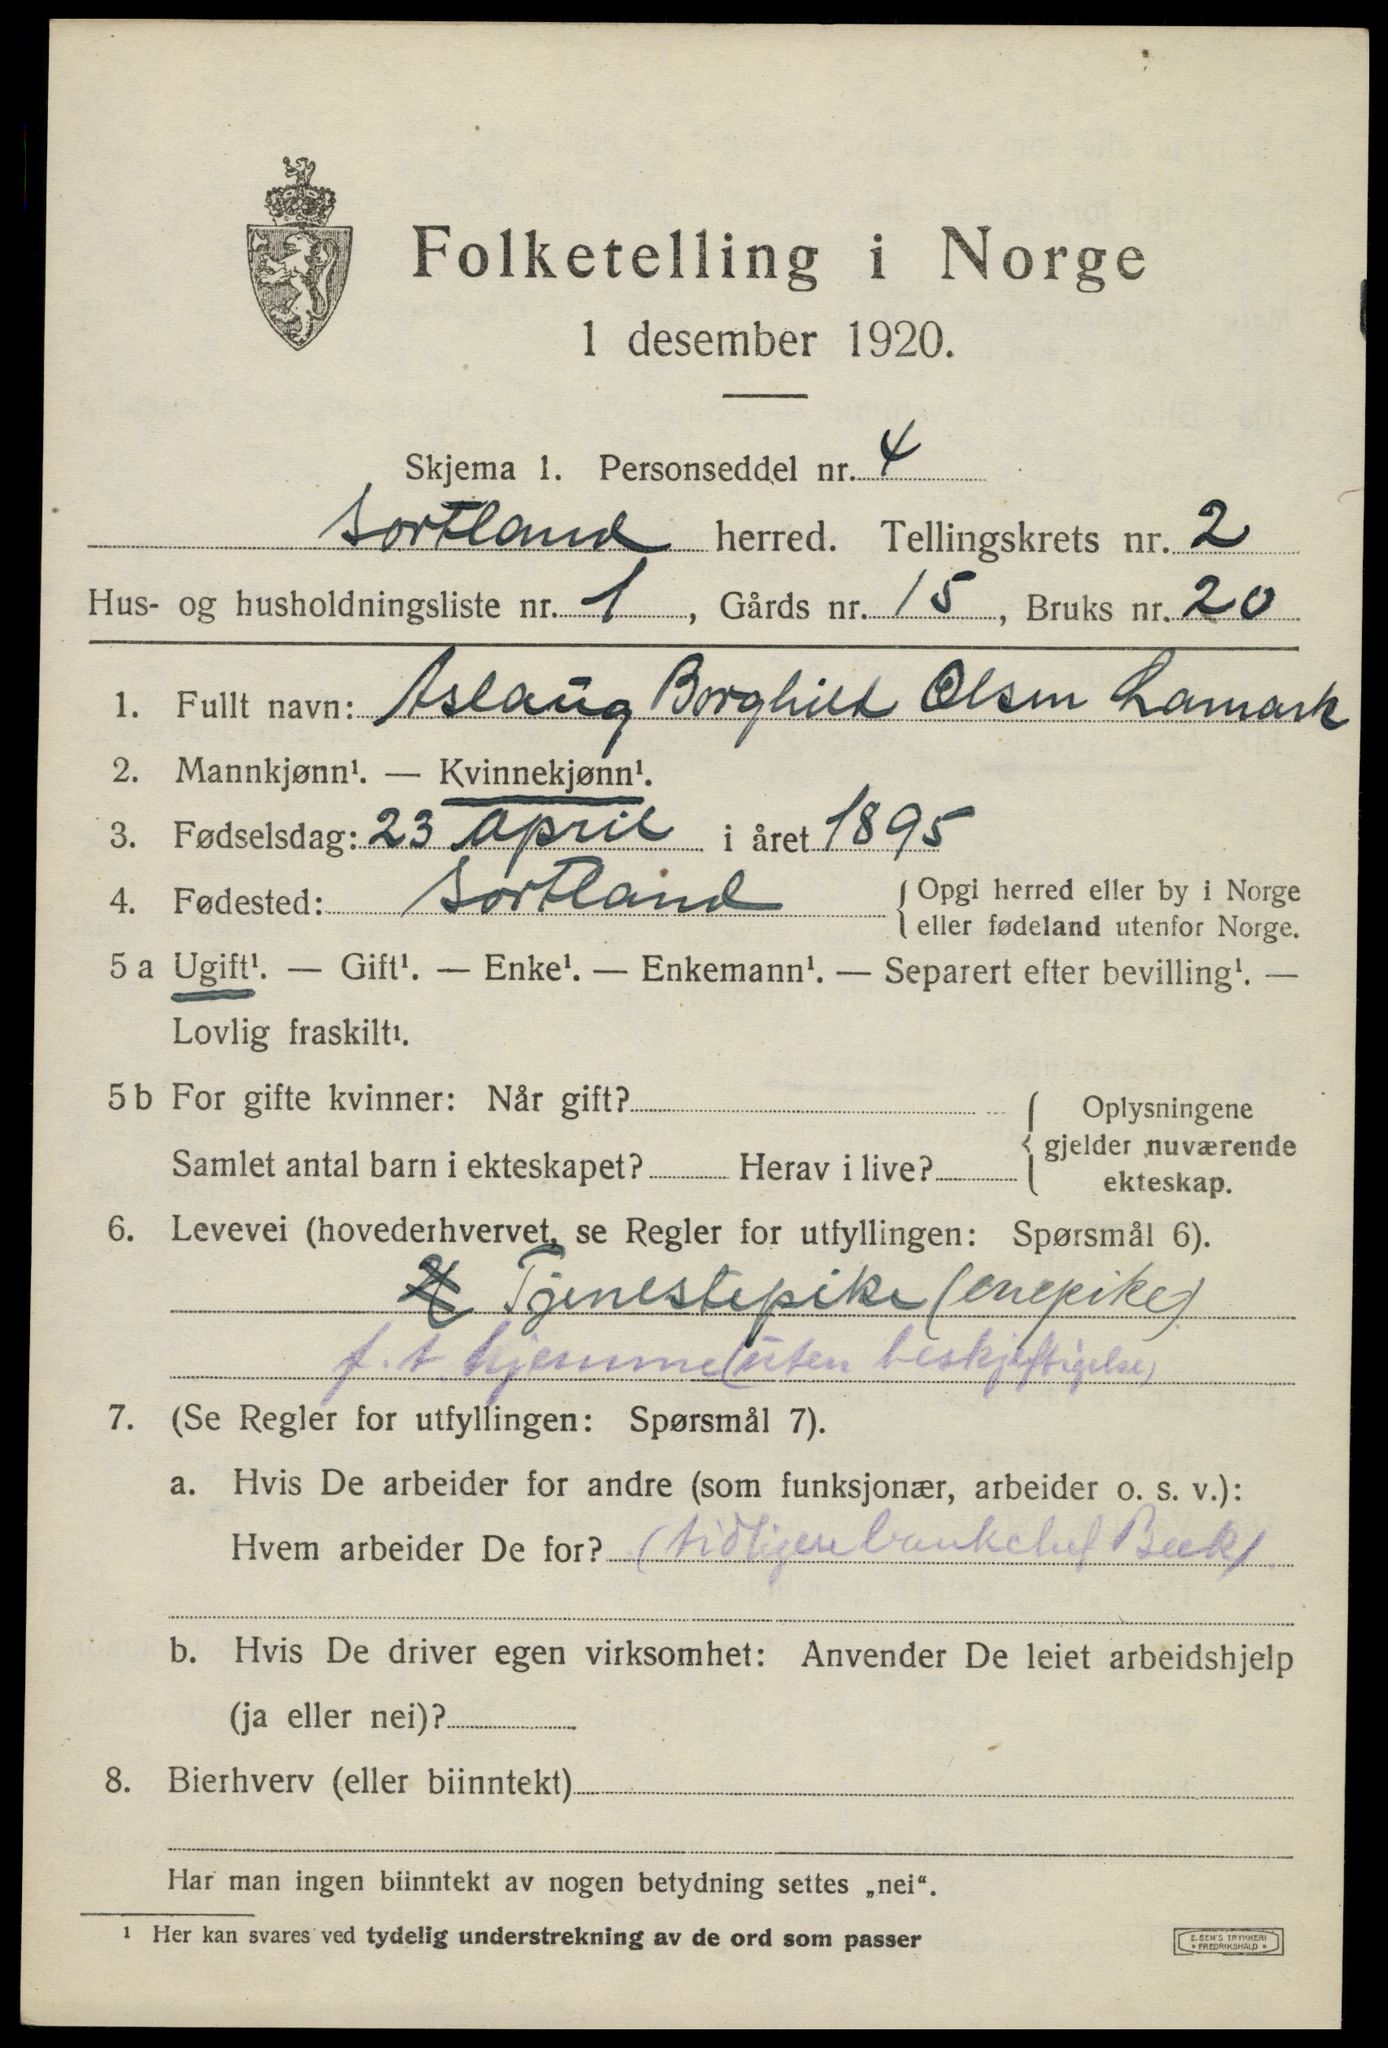 Folketelling i Norge
1 desember 1920.
Skjema 1. Personseddel nr. 4
Sortland herred. Tellingskrets nr. 2
Hus- og husholdningsliste nr. 1, Gårds nr. 15, Bruks nr. 20
1. Fullt navn: Aslaug Borghild Olsen Lamark
2. Mannkjønn¹. — Kvinnekjønn¹.
3. Fødselsdag: 23 april i året 1895
4. Fødested: Sortland { Opgi herred eller by i Norge
eller fødeland utenfor Norge.
5 a Ugift¹. — Gift¹. — Enke¹. — Enkemann¹. — Separert efter bevilling¹. —
Lovlig fraskilt¹.
5 b For gifte kvinner: Når gift?
Samlet antal barn i ekteskapet? Herav i live?
{ Oplysningene
gjelder nuværende
ekteskap.
6. Levevei (hovederhvervet, se Regler for utfyllingen: Spørsmål 6).
Tjenestepike (enepike)
f. t. hjemme (uten beskjeftigelse)
7. (Se Regler for utfyllingen: Spørsmål 7).
a. Hvis De arbeider for andre (som funksjonær, arbeider o. s. v.):
Hvem arbeider De for? (tidligere bankchef Beck)
b. Hvis De driver egen virksomhet: Anvender De leiet arbeidshjelp
(ja eller nei)?
8. Bierhverv (eller biinntekt)
Har man ingen biinntekt av nogen betydning settes „nei“.
¹ Her kan svares ved tydelig understrekning av de ord som passer
E. SEM'S TRYKKERI
FREDRIKSHALD